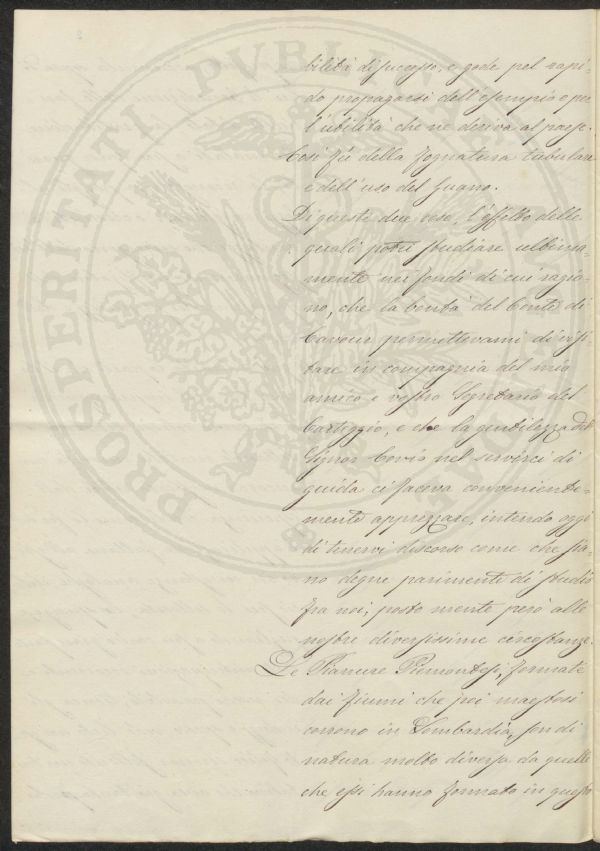 bilità di successo, e gode pel rapi-
do propagarsi dell'esempio e per
l'utilità che ne deriva al paese.
Così fù della fognatura tubulare
e dell'uso del Guano.
Di queste due cose, l'effetto delle
quali potei studiare ultima-
mente nei fondi di cui ragio-
no, che la bontà del Conte di
Cavour permettevami di visi-
tare in compagnia del mio
amico e vostro Segretario del
Carteggio, e che la gentilezza del
Signor Corio nel servirci di
guida ci faceva conveniente-
mente apprezzare, intendo oggi
di tenervi discorso come che sia-
no degne parimenti di studio
fra noi, posto mente però alle
nostre diversissime circostanze.
Le Pianure Piemontesi, formate
dai fiumi che poi maestosi
corrono in Lombardia, son di
natura molto diversa da quelle
che essi hanno formato in questo
PROSPERITATI PVBLICAE